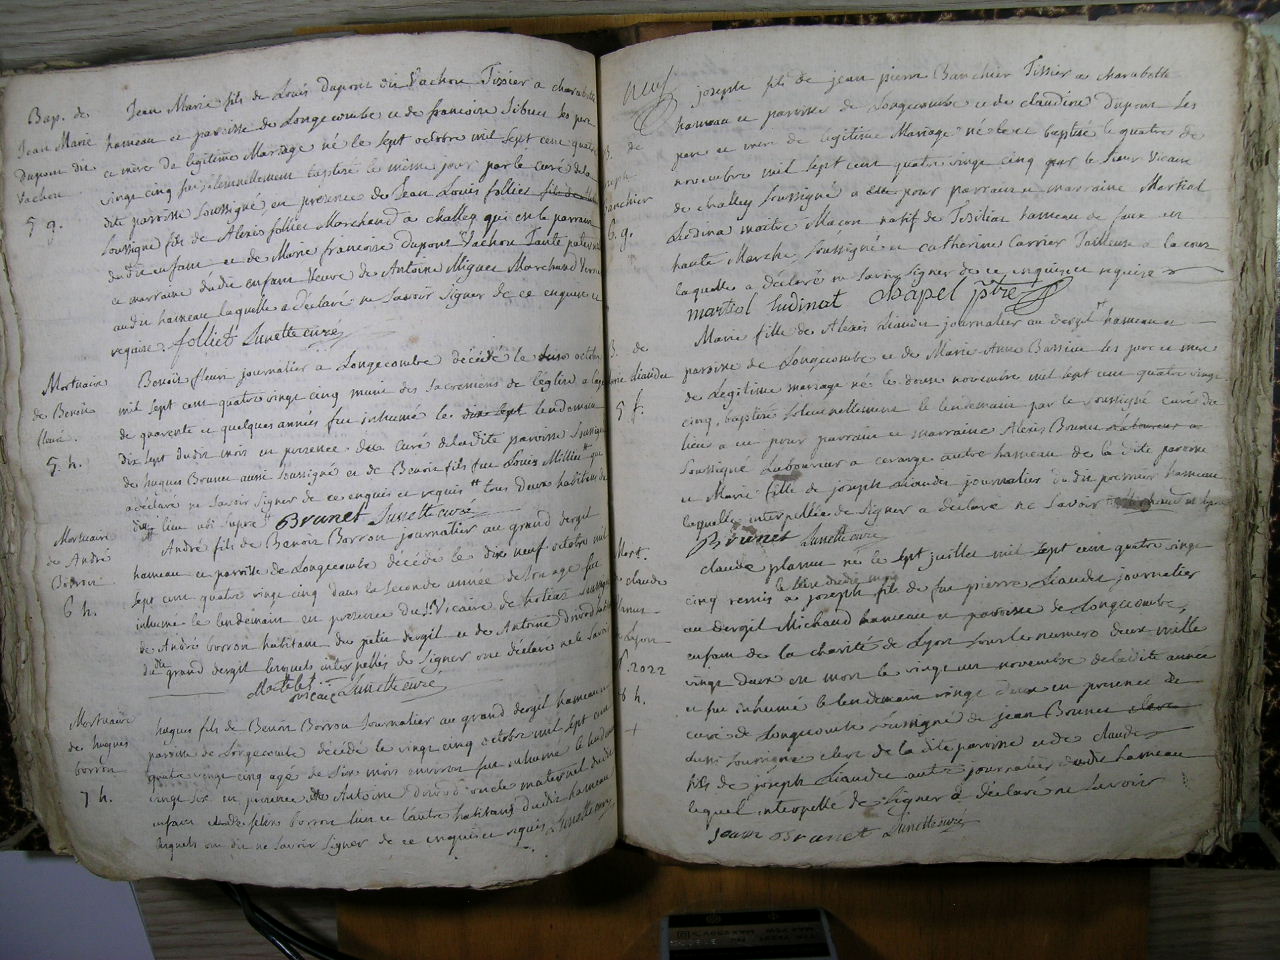 Bap. de
Jean Marie
Dupont dit
Vachon
5 g.
Jean Marie fils de Louis Dupont dit Vachon Tissier a charabotte
hameau et paroisse de Longecombe et de francoise Sibuet les pere
et mere de legitime Mariage né le sept octobre mil sept cent quatre
vingt cinq fut solemnellement baptisé le même jour par le curé de la
dite paroisse soussigné, en présence de Jean Louis folliet
soussigné fils de Alexis folliet Marchand a challey qui en le parrain
du dit enfant et de Marie francoise Dupont Vachon Tante paternelle
et marraine du dit enfant Veuve de Antoine Miguet Marchand
au dit hameau laquelle a déclaré ne savoir signer de ce enquise et
requise. folliet Lunette curé
Mortuaire
de Benoit
fleuri.
5. h.
Benoit fleuri journalier a Longecombe décédé le octobre
mil sept cent quatre vingt cinq muni des sacremens de l'église a l'age
de quarente et quelques années fut inhumé le dix sept lendemain
dix sept du dit mois en presence du curé de la dite paroisse soussigné
de hugues Brunet aussi soussigné et de Benoit fils de feu Louis Milliet qui
a déclaré ne savoir signer de ce enquis et requis tous deux habitans du
dit lieu ubi supra Brunet Lunette curé
Mortuaire
de André
Borron
6 h.
André fils de Benoit Borron journalier au grand dergit
hameau et paroisse de Longecombe décédé le dix neuf octobre mil
sept cent quatre vingt cinq dans la seconde année de son age fut
inhumé le lendemain en presence du Sr Vicaire de hotiaz soussigné
de André borron habitant du petit dergit et de Antoine
du grand dergit lesquels interpellés de signer ont déclaré ne le savoir
vicaire Lunette curé
Mortuaire
de hugues
borron
7 h.
hugues fils de Benoit Borron Journalier au grand dergit hameau et
paroisse de Longecombe décédé le vingt cinq octobre mil sept cent
quatre vingt cinq agé de six mois environ fut inhumé le lendemain
vingt six en presence de Antoine oncle maternel du dit
enfant et de borron l'un et l'autre habitans du dit hameau
lesquels ont dit ne savoir signer de ce enquis et requis Lunette curé
neuf
B.
de
joseph
banchier
6. g.
joseph fils de jean pierre Banchier Tissier a charabotte
hameau et paroisse de Longecombe et de claudine dupont les
pere et mere de légitime Mariage né le et baptisé le quatre de
novembre mil sept cent quatre vingt cinq par le sieur Vicaire
de challey soussigné a eu pour parrain et marraine Martial
Ludina maitre Macon natif de hameau de faux en
haute Marche, soussigné et catherine Carrier Tailleuse a la cour
laquelle a déclaré ne savoir signer de ce enquise et requise
martial Ludinat chapel ptre
B. de
marie Liaudet
5 f.
Marie fille de Alexis Liaudet journalier au dergit hameau et
paroisse de Longecombe et de Marie Anne Bassieu les pere et mere
de Légitime mariage né le douze novembre mil sept cent quatre vingt
cinq, baptisé solemnellement le lendemain par le soussigné curé du
lieu a eu pour parrain et marraine Alexis Brunet Laboureur a
soussigné Laboureur a autre hameau de la dite paroisse
et Marie fille de joseph Liaudet journalier du dit premier hameau
laquelle interpellée de signer a déclaré ne savoir
Brunet Lunette curé
Mort.
de claude
planus
de Lyon
N. 2022
8 h.
+
claude planus né le sept juillet mil sept cent quatre vingt
cinq remis a joseph fils de feu pierre Liaudet journalier
au dergit Michaud hameau et paroisse de Longecombe,
enfant de la charité de Lyon sous le numero deux mille
vingt deux est mort le vingt un novembre de la dite année
et fut inhumé le lendemain vingt deux en presence du
curé de Longecombe soussigné de jean Brunet
aussi soussigné clerc de la dite paroisse et de claude
fils de joseph Liaudet autre journalier du dit hameau
lequel interpellé de signer a déclaré ne savoir
jean Brunet Lunette curé